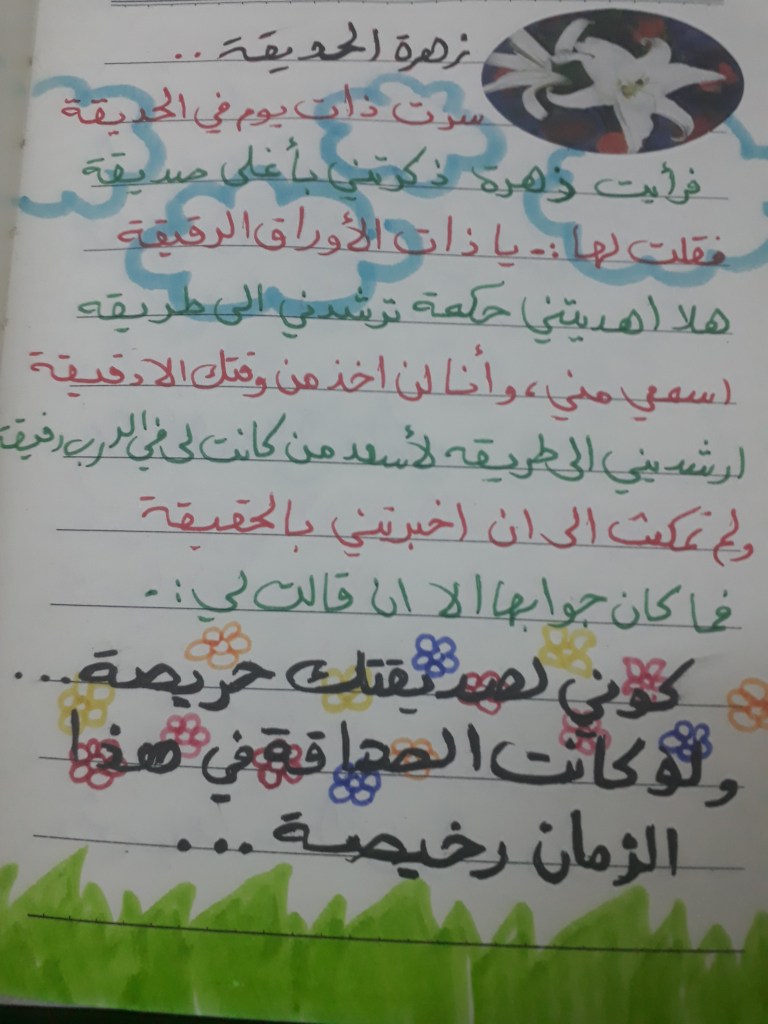 زهرة الحديقة ..
سرت ذات يوم في الحديقة
فرأيت زهرة ذكرتني بأغلى صديقة
فقلت لها :- يا ذات الأوراق الرقيقة
هلا اهديتني حكمة ترشدني الى طريقه
اسمعي مني، وأنا لن اخذ من وقتك الا دقيقة
ارشديني الى طريقه لأسعد من كانت لي في الدرب رفيقة
ولم تمكث الى ان اخبرتني بالحقيقة
فما كان جوابها الا ان قالت لي :-
كوني لصديقتك حريصة...
ولو كانت الصداقة في هذا
الزمان رخيصة ...